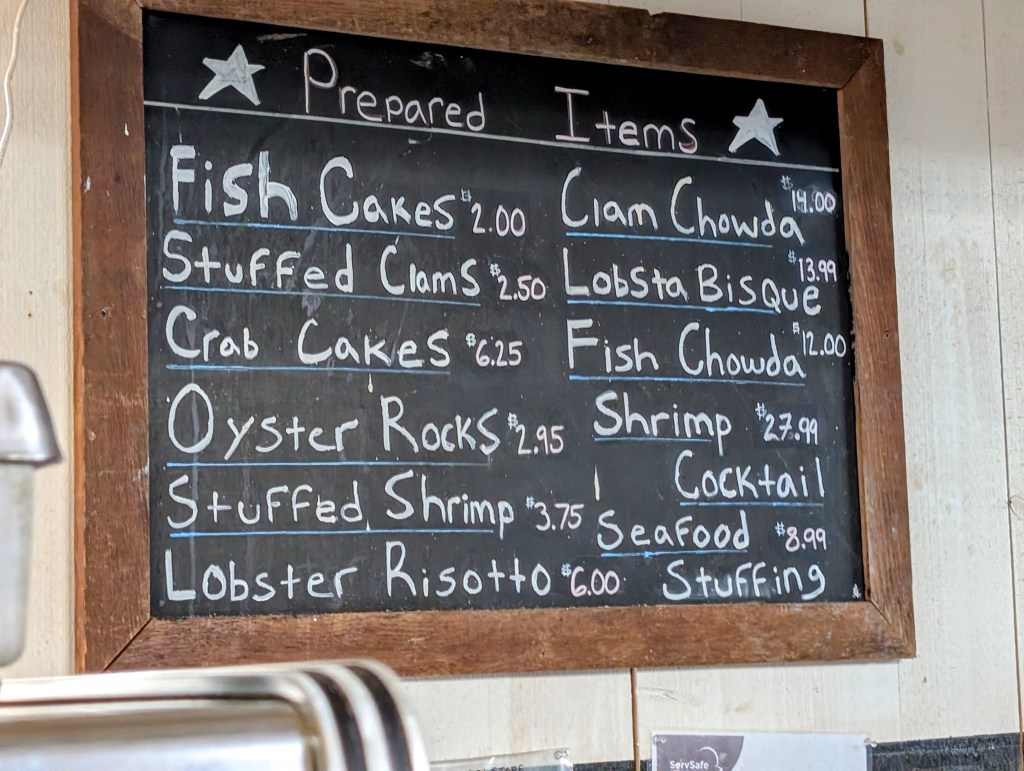 Prepared Items
Fish Cakes $2.00
Stuffed Clams $2.50
Crab Cakes $6.25
Oyster Rocks $2.95
Stuffed Shrimp $3.75
Lobster Risotto $6.00
Clam Chowda $14.00
Lobsta Bisque $13.99
Fish Chowda $12.00
Shrimp $27.99
Cocktail
Seafood $8.99
Stuffing
ServSafe